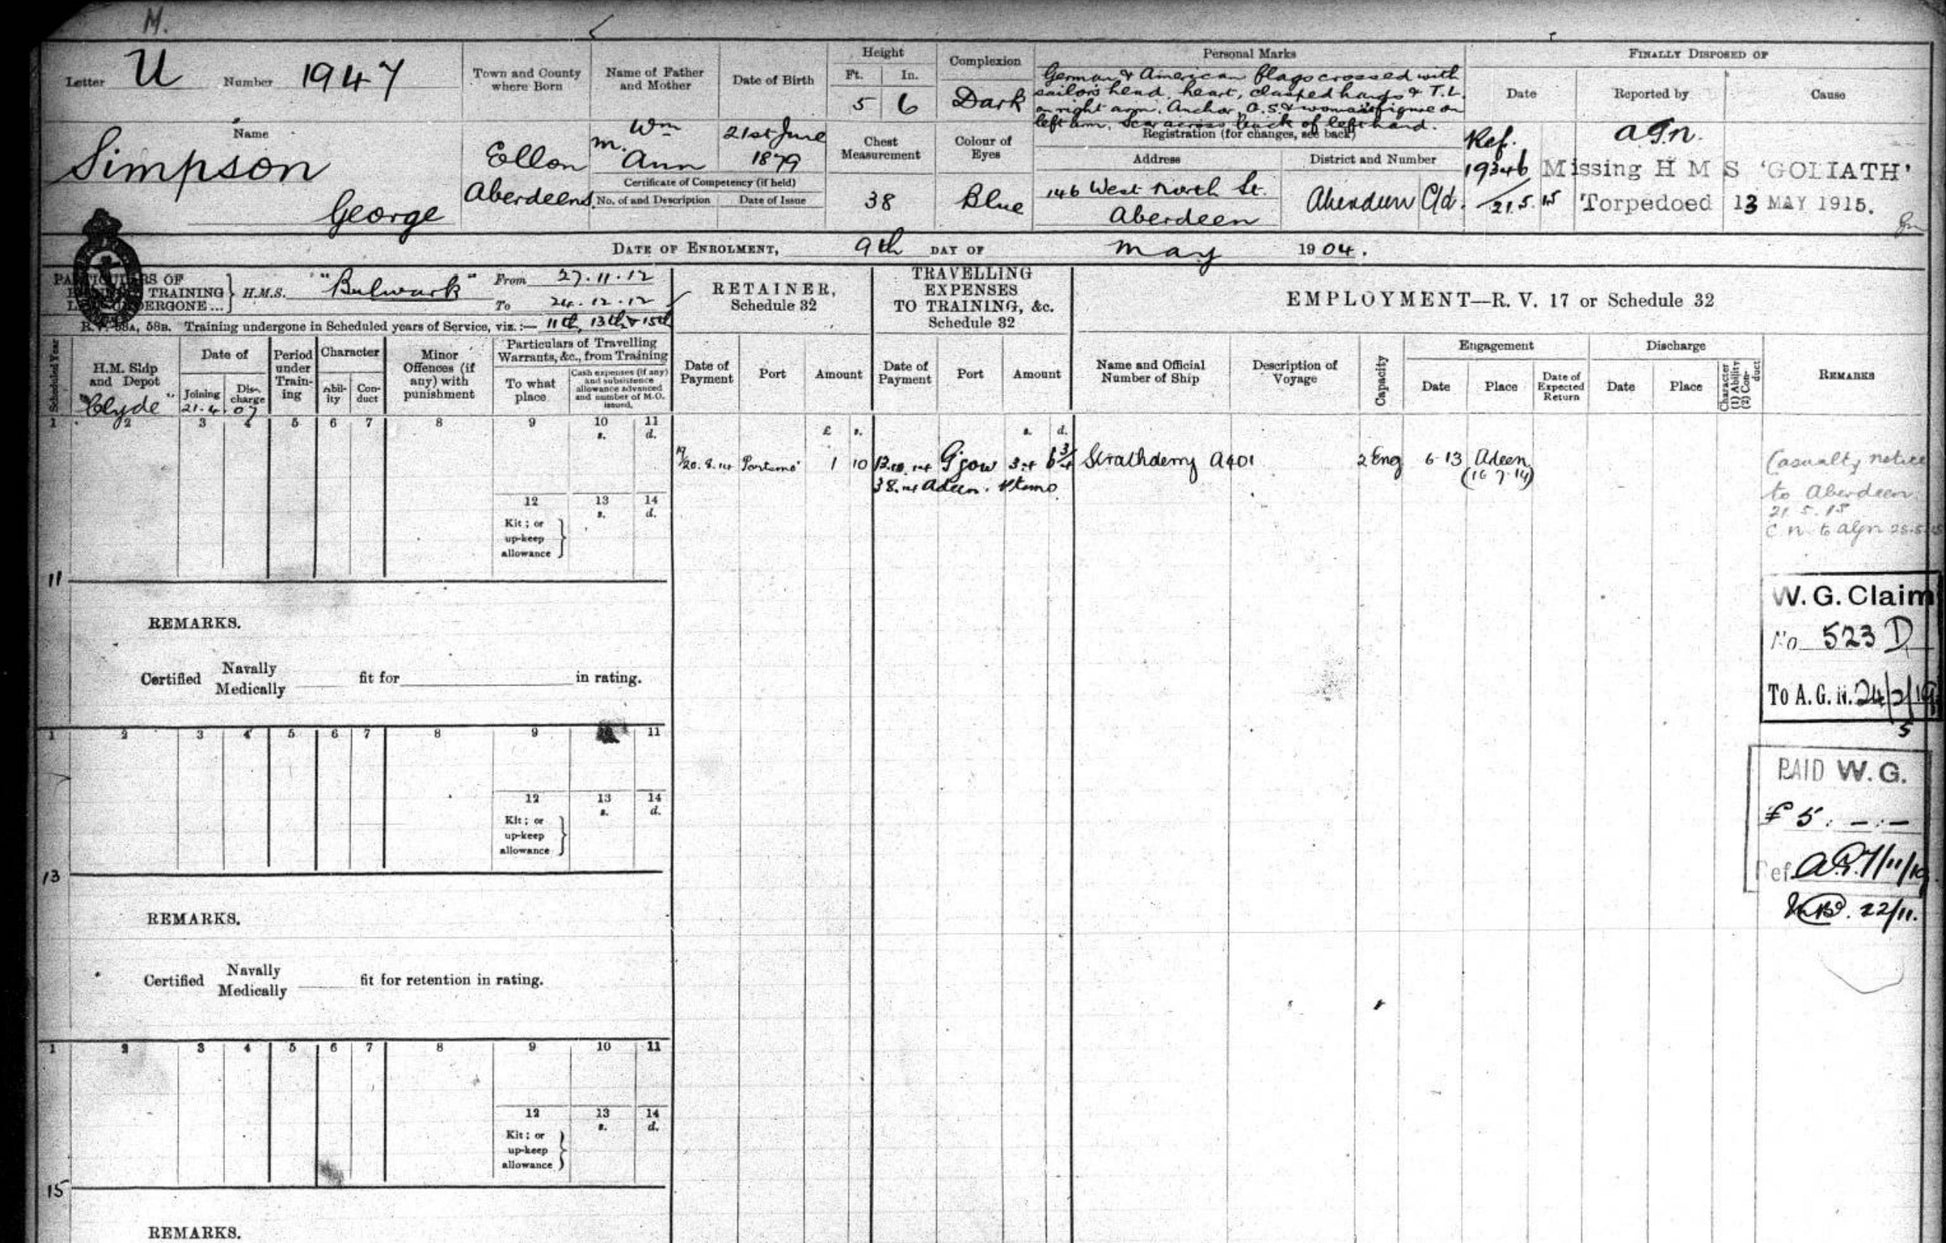 M.
Letter U Number 1947
Name
Simpson
George
Town and County where Born
Ellon
Aberdeens.
Name of Father and Mother
Wm
m. Ann
Certificate of Competency (if held)
No. of and Description Date of Issue
Date of Birth
21st June
1879
Height
Ft. In.
5 6
Chest Measurement
38
Complexion
Dark
Colour of Eyes
Blue
Personal Marks
German & American flags crossed with
sailors head, heart, clasped hands & T.L.
on right arm. Anchor A.S. & woman's figure on
left arm. Scar across back of left hand.
Registration (for changes, see back)
Address District and Number
146 West North St.
Aberdeen
Aberdeen C/d.
FINALLY DISPOSED OF
Date Reported by Cause
Ref. A.G.N.
19346 Missing H M S 'GOLIATH'
21.5.15 Torpedoed 13 MAY 1915.
DATE OF ENROLMENT, 9th DAY OF May 1904.
PARTICULARS OF TRAINING UNDERGONE ... } H.M.S. "Bulwark" From 27.11.12
To 24.12.12
R.V. 53A, 58B. Training undergone in Scheduled years of Service, viz.:— 11th, 13th & 15th
RETAINER, Schedule 32
TRAVELLING EXPENSES TO TRAINING, &c. Schedule 32
EMPLOYMENT—R. V. 17 or Schedule 32
Scheduled Year
H.M. Ship and Depot
"Clyde"
Date of
Joining Discharge
21.4.07
Period under Training
Character
Ability Conduct
Minor Offences (if any) with punishment
Particulars of Travelling Warrants, &c., from Training
To what place
Cash expenses (if any) and subsistence allowance advanced and number of M.O. issued.
Date of Payment Port Amount
Date of Payment Port Amount
Name and Official Number of Ship
Description of Voyage
Capacity
Engagement
Date Place Date of Expected Return
Discharge
Date Place
Character (1) Ability (2) Conduct
REMARKS
1 2 3 4 5 6 7 8 9 10 11
s. d.
£ s. s. d.
20.8.14 Portsmo' 1 10 G'gow 6¾ 2 Eng 6.13 Adeen
(16.7.14)
Adeen.
Casualty notice
to Aberdeen
21.5.15
12 13 14
s. d.
Kit; or up-keep allowance }
11
REMARKS.
Certified Navally Medically fit for in rating.
W. G. Claim
No 523 D
To A. G. N. 24/2/19
5
1 2 3 4 5 6 7 8 9 11
PAID W. G.
£ 5 : — : —
Ref.
22/11.
12 13 14
s. d.
Kit; or up-keep allowance }
13
REMARKS.
Certified Navally Medically fit for retention in rating.
1 2 3 4 5 6 7 8 9 10 11
12 13 14
s. d.
Kit; or up-keep allowance }
15
REMARKS.